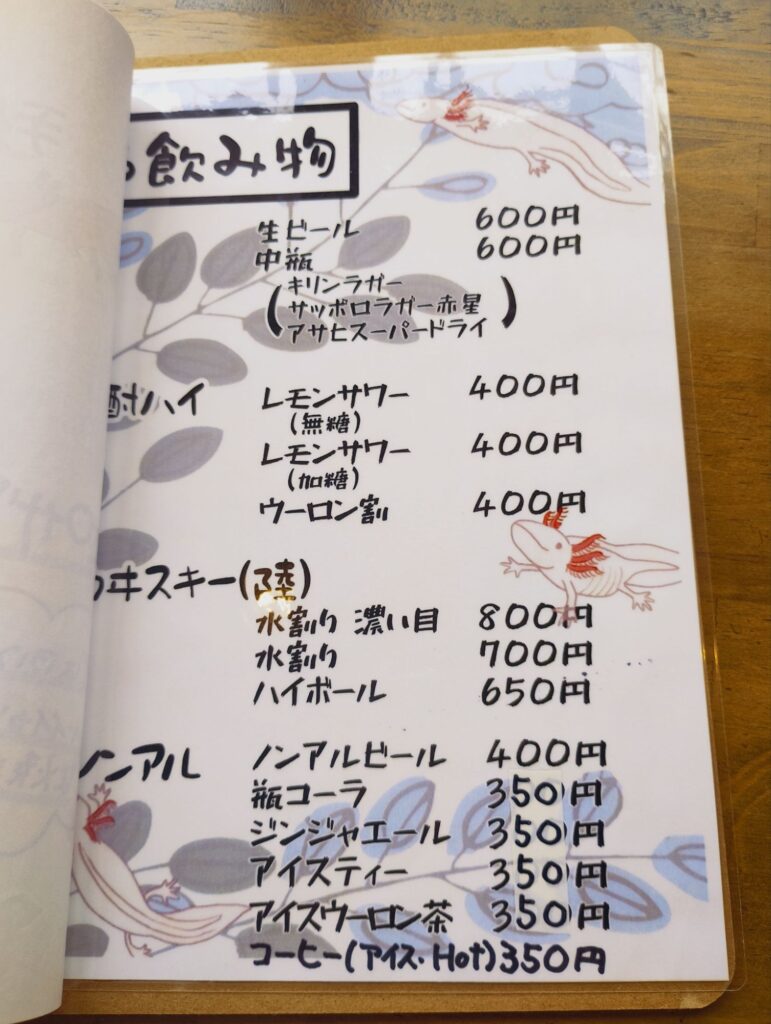 飲み物
生ビール 600円
中瓶 600円
(キリンラガー
サッポロラガー赤星
アサヒスーパードライ)
酎ハイ レモンサワー 400円
(無糖)
レモンサワー 400円
(加糖)
ウーロン割 400円
ヰスキー(陸)
水割り 濃い目 800円
水割り 700円
ハイボール 650円
ノンアル ノンアルビール 400円
瓶コーラ 350円
ジンジャエール 350円
アイスティー 350円
アイスウーロン茶 350円
コーヒー(アイス・Hot) 350円